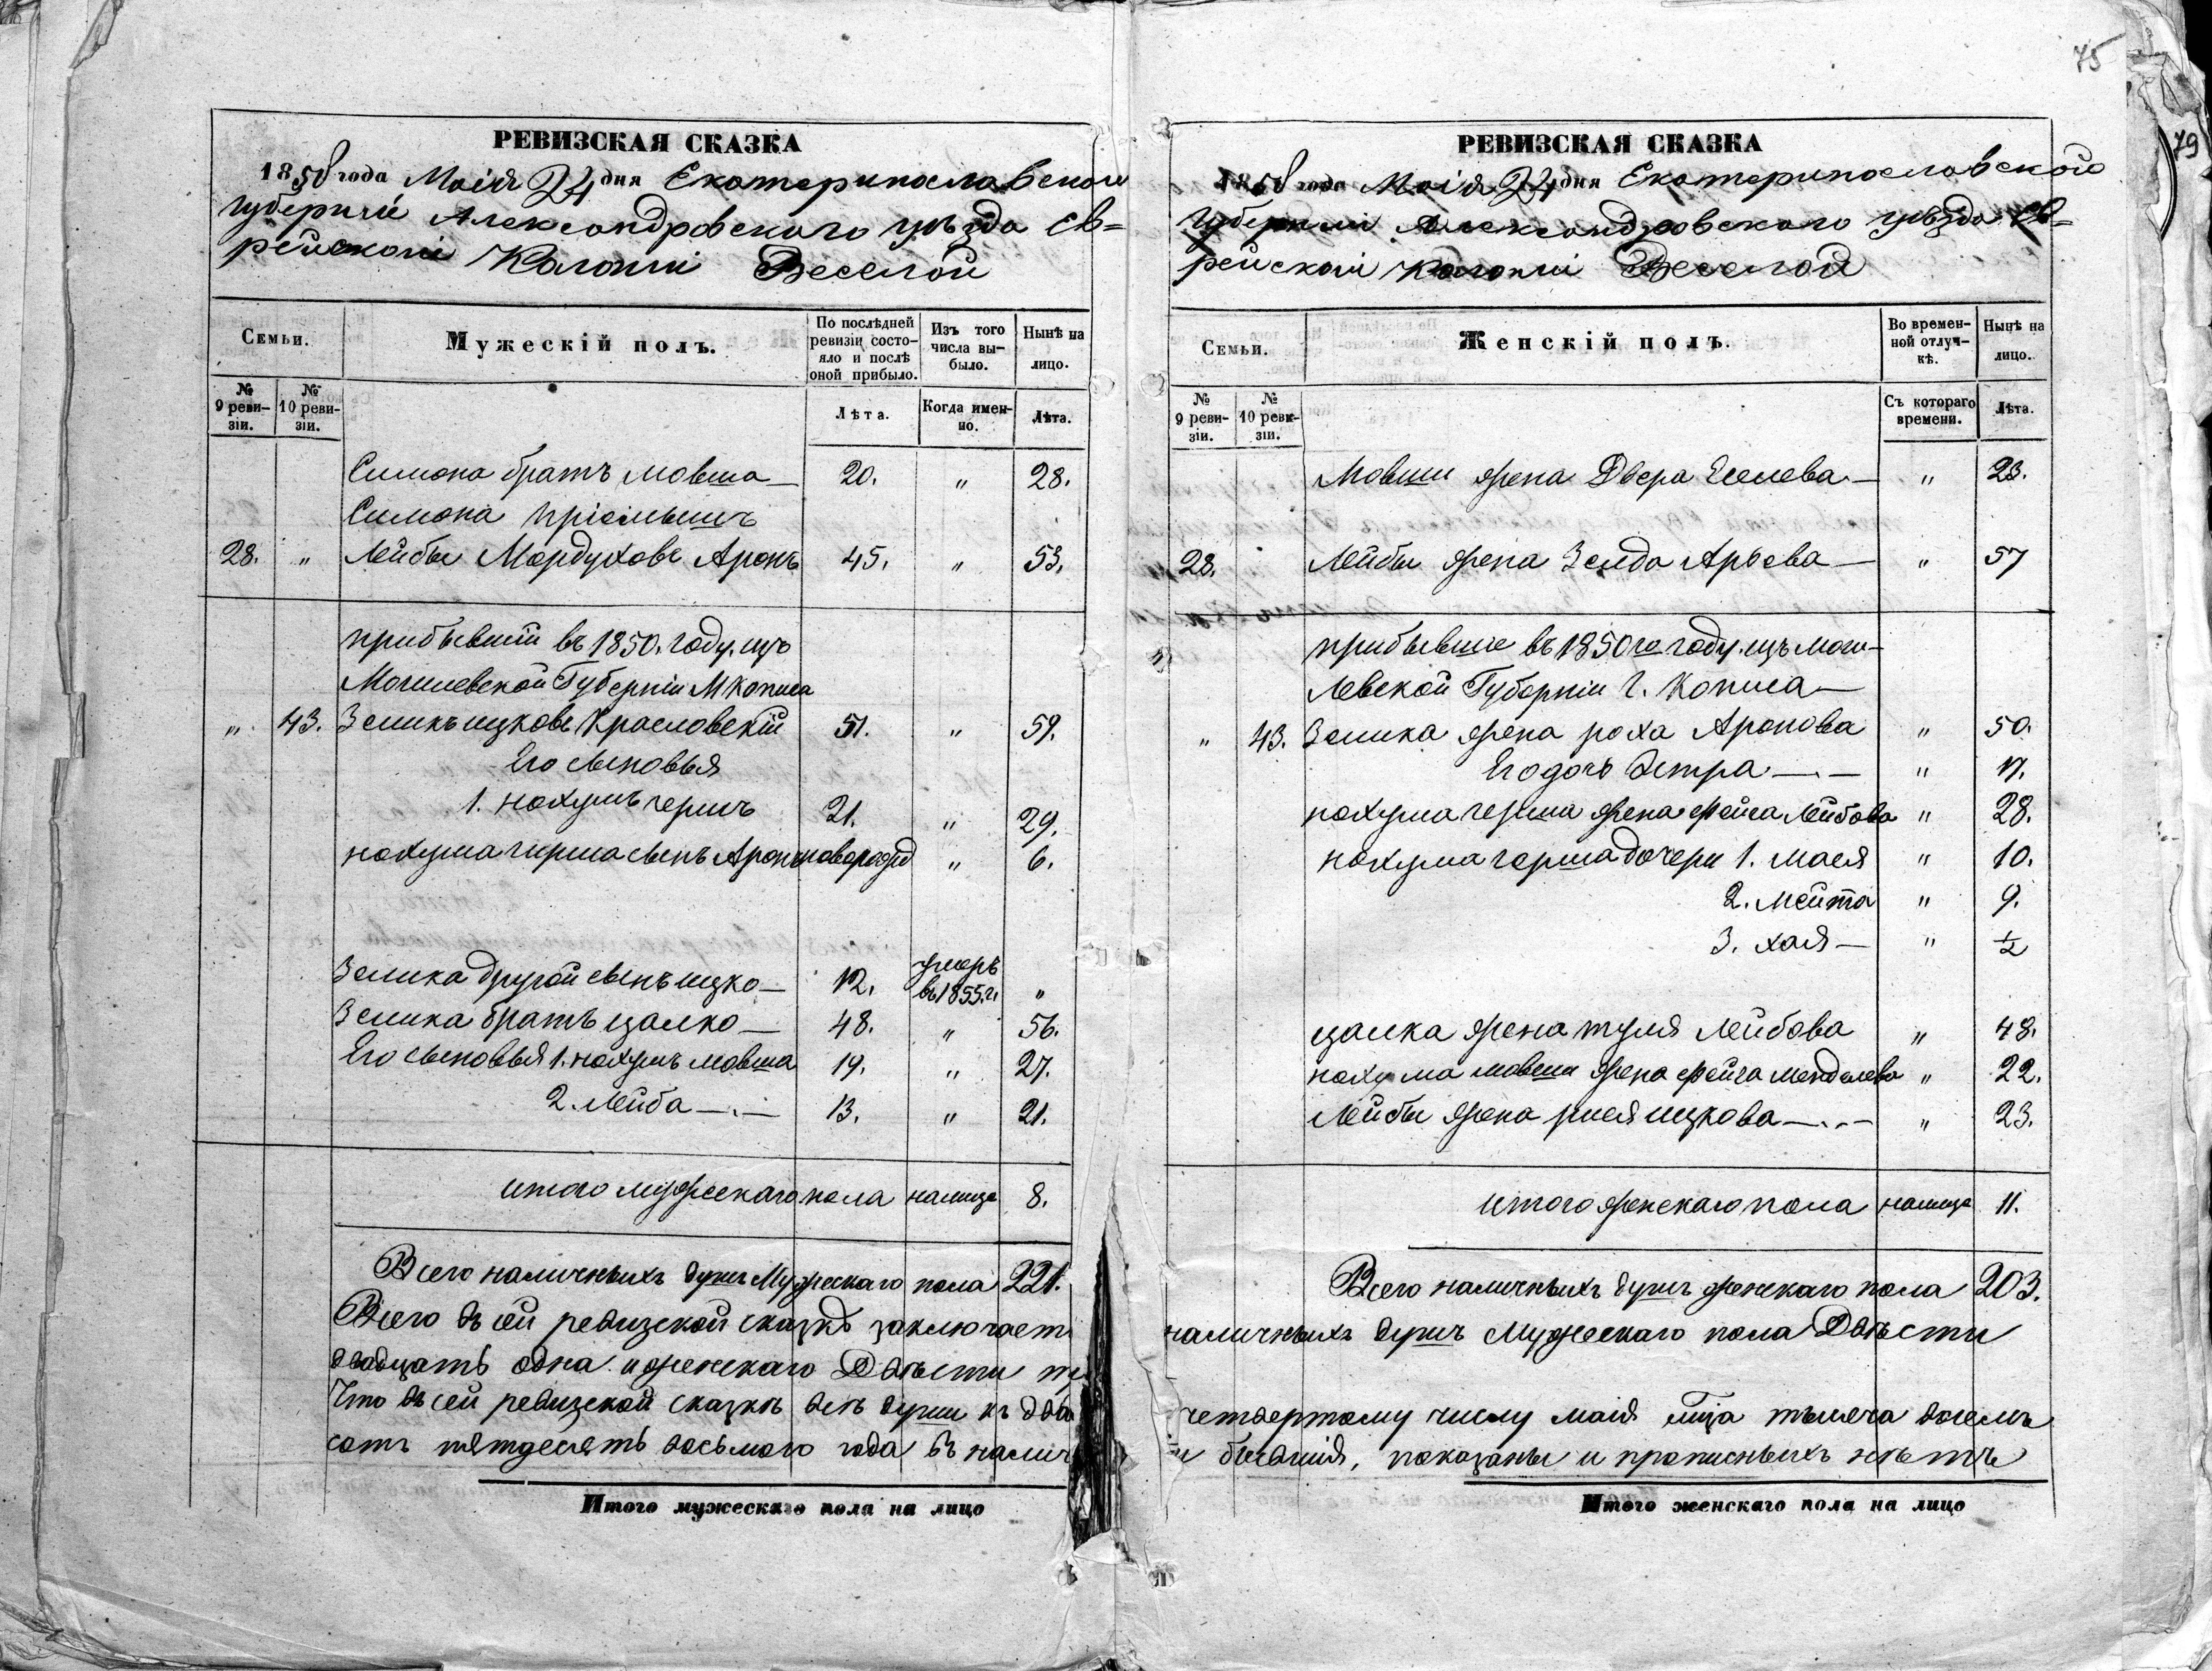 75
79
РЕВИЗСКАЯ СКАЗКА
1858 года Маія 24 дня Екатеринославской
Губерніи Александровскаго уѣзда Ев=
рейской Колоніи Веселой
Семьи.
Мужескій полъ.
По послѣдней ревизіи состо-
яло и послѣ
оной прибыло.
Изъ того
числа вы-
было.
Нынѣ на
лицо.
№ 9 реви-
зіи.
№ 10 реви-
зіи.
Лѣта.
Когда имен-
но.
Лѣта.
Симона братъ Мовша — 20. " 28.
Симона пріемышъ
28. " Лейбы Мордуховъ Аронъ 45. " 53.
прибывшій въ 1850. году. изъ
Могилевской Губерніи М Копыса
" 43. Зеликъ Ицковъ Красловскій 51. " 59.
Его сыновья
1. Нохумъ Гершъ 21. " 29.
Нохума Герша сынъ Аронъ новорожд " 6.
Зелика другой сынъ Ицко — 12. умеръ въ 1855. г. "
Зелика братъ Цалко — 48. " 56.
Его сыновья 1. Нохумъ Мовша 19. " 27.
2. Лейба — . — 13. " 21.
Итого мужескаго пола налицо 8.
Всего наличныхъ душъ Мужескаго пола 221.
Всего въ сей ревизской сказкѣ заключает
двадцать одна и женскаго Двѣсти
Что въ сей ревизской сказкѣ всѣ души къ два
сотъ пятдесятъ восьмого года въ налич
Итого мужескаго пола на лицо
РЕВИЗСКАЯ СКАЗКА
1858 года Маія 24 дня Екатеринославской
Губерніи Александровскаго уѣзда Ев=
рейской Колоніи Веселой
Семьи.
Женскій полъ.
Во времен-
ной отлуч-
кѣ.
Нынѣ на
лицо.
№ 9 реви-
зіи.
№ 10 реви-
зіи.
Съ котораго
времени.
Лѣта.
Мовши жена Двера Еселева — " 23.
28. Лейбы жена Зелда Арьева — " 57
прибывшіе въ 1850го году. изъ Моги-
левской Губерніи Г. Копыса —
" 43. Зелика жена Роха Аронова " 50.
Его дочь Эстра — . — " 17.
Нохума Герша жена Фейга Лейбова " 28.
Нохума Герша дочери 1. Мася " 10.
2. Мейта " 9.
3. Хая — " ½
Цалка жена Туля Лейбова " 48.
Нохума Мовши жена Фейга Менделева " 22.
Лейбы жена Рися Ицкова — . . — " 23.
Итого женскаго пола налицо 11.
Всего наличныхъ душъ женскаго пола 203.
наличныхъ душъ Мужескаго пола Двѣсти
четвертому числу маія мца тысяча восемъ
бывшія, показаны и прописныхъ нѣтъ
Итого женскаго пола на лицо